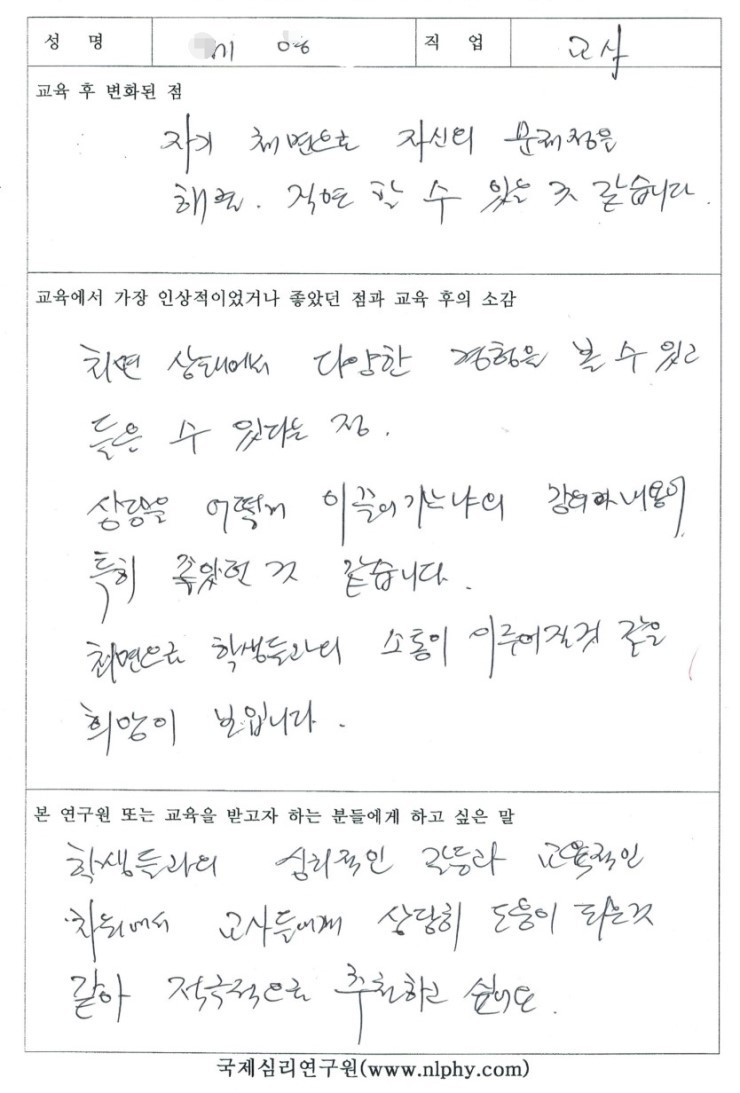 성 명 직 업 교사
교육 후 변화된 점
자기 최면으로 자신의 문제점을
해결. 직면 할 수 있을 것 같습니다.
교육에서 가장 인상적이었거나 좋았던 점과 교육 후의 소감
최면 상태에서 다양한 경험을 볼 수 있고
들을 수 있다는 점.
상담을 어떻게 이끌어가느냐의 강의와 내용이
특히 좋았던 것 같습니다.
최면으로 학생들과의 소통이 이루어질것 같은
희망이 보입니다.
본 연구원 또는 교육을 받고자 하는 분들에게 하고 싶은 말
학생들과의 심리적인 갈등과 교육적인
차원에서 교사들에게 상당히 도움이 되는것
같아 적극적으로 추천하고 싶어요.
국제심리연구원(www.nlphy.com)